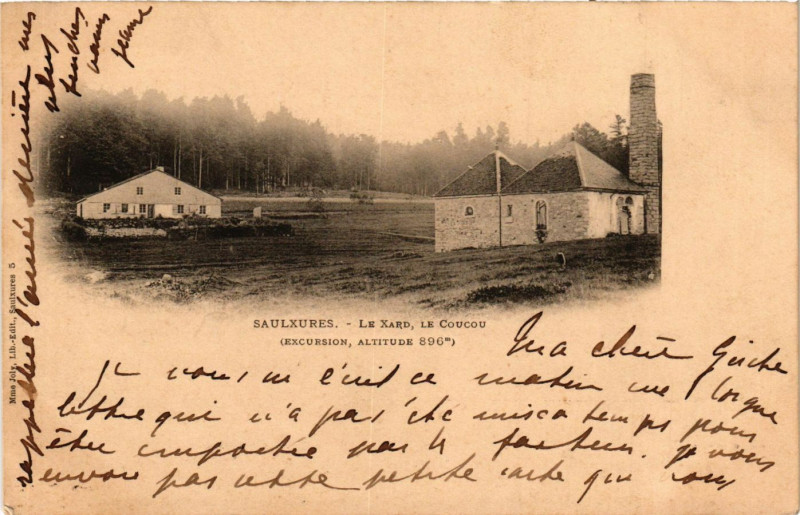 SAULXURES. - LE XARD, LE COUCOU
(EXCURSION, ALTITUDE 896m)
Mme Joly, Lib.-Edit., Saulxures 5
Ma chère
Je vous ce matin une longue
lettre qui n'a pas été mise a temps pour
être emportée par le facteur. Je vous
envoie par cette petite carte que vous
rappellera l'année dernière mes
plus